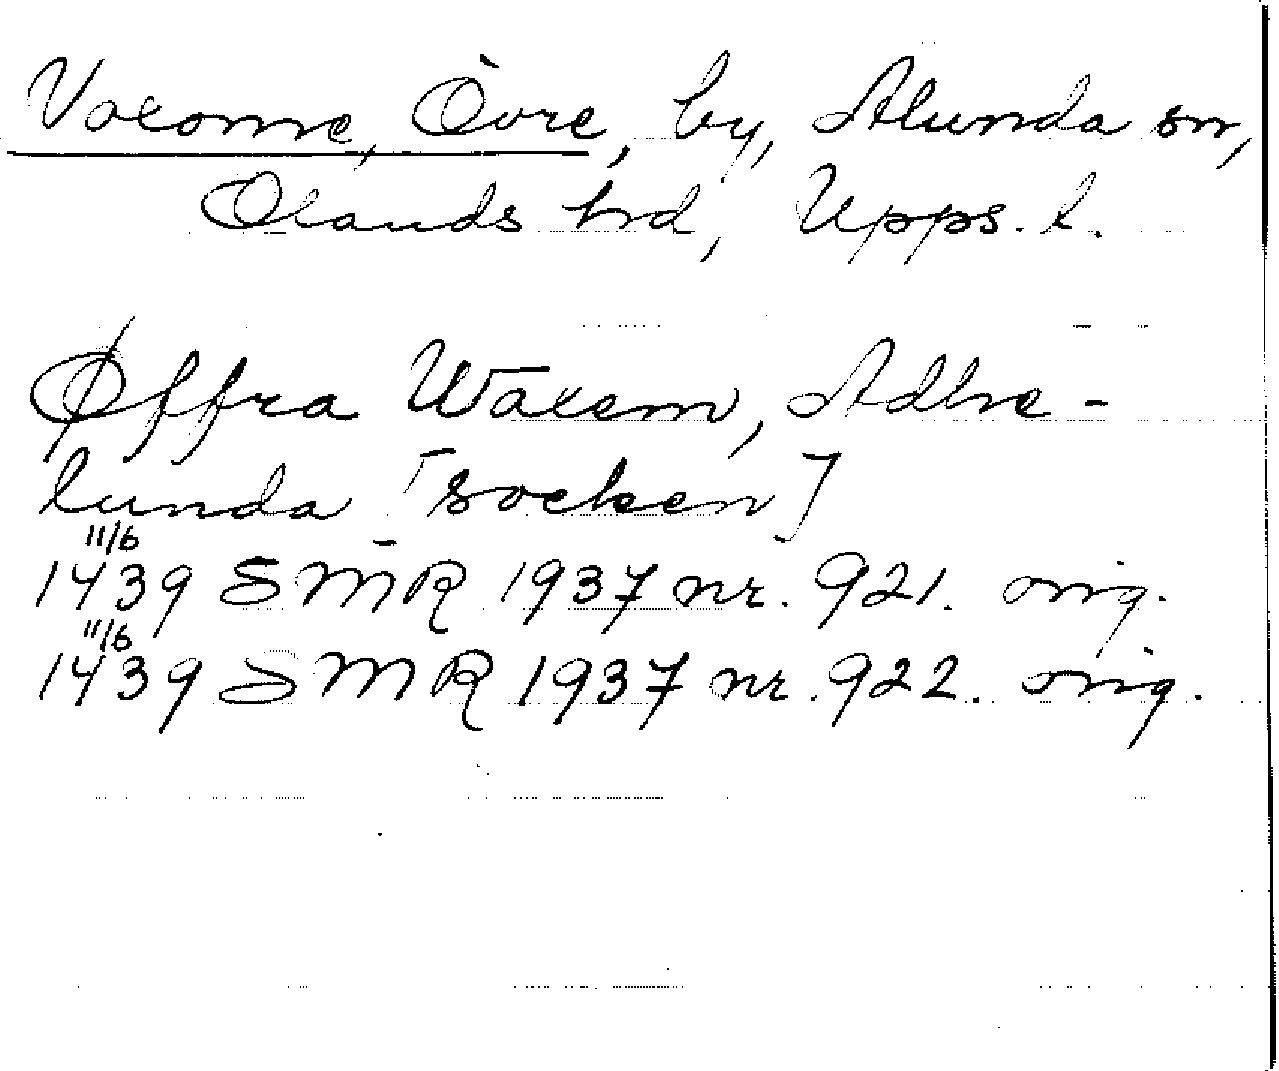 Vaxome, Övre, by, Alunda sn,
Olands hrd, Upps. l.
Øffra Waxem, Adhe-
lunda [socken]
11/6
1439 SMR 1937 nr. 921. orig.
11/6
1439 SMR 1937 nr. 922. orig.